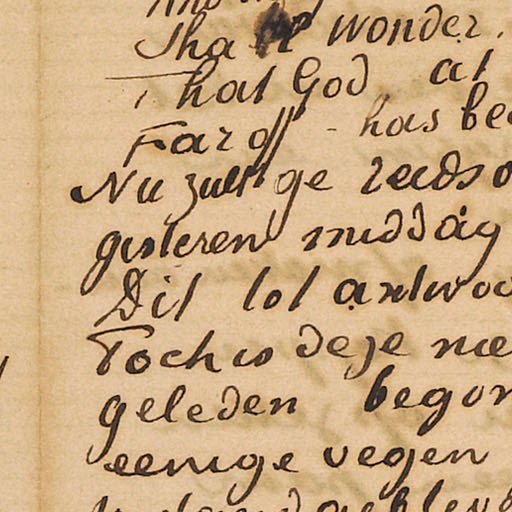 Shall wonder.
That God at
Far off - has be
Nu zult ge reeds o
gisteren middag
Dit tot antwoo
Toch is deze
geleden begon
eenige vegen